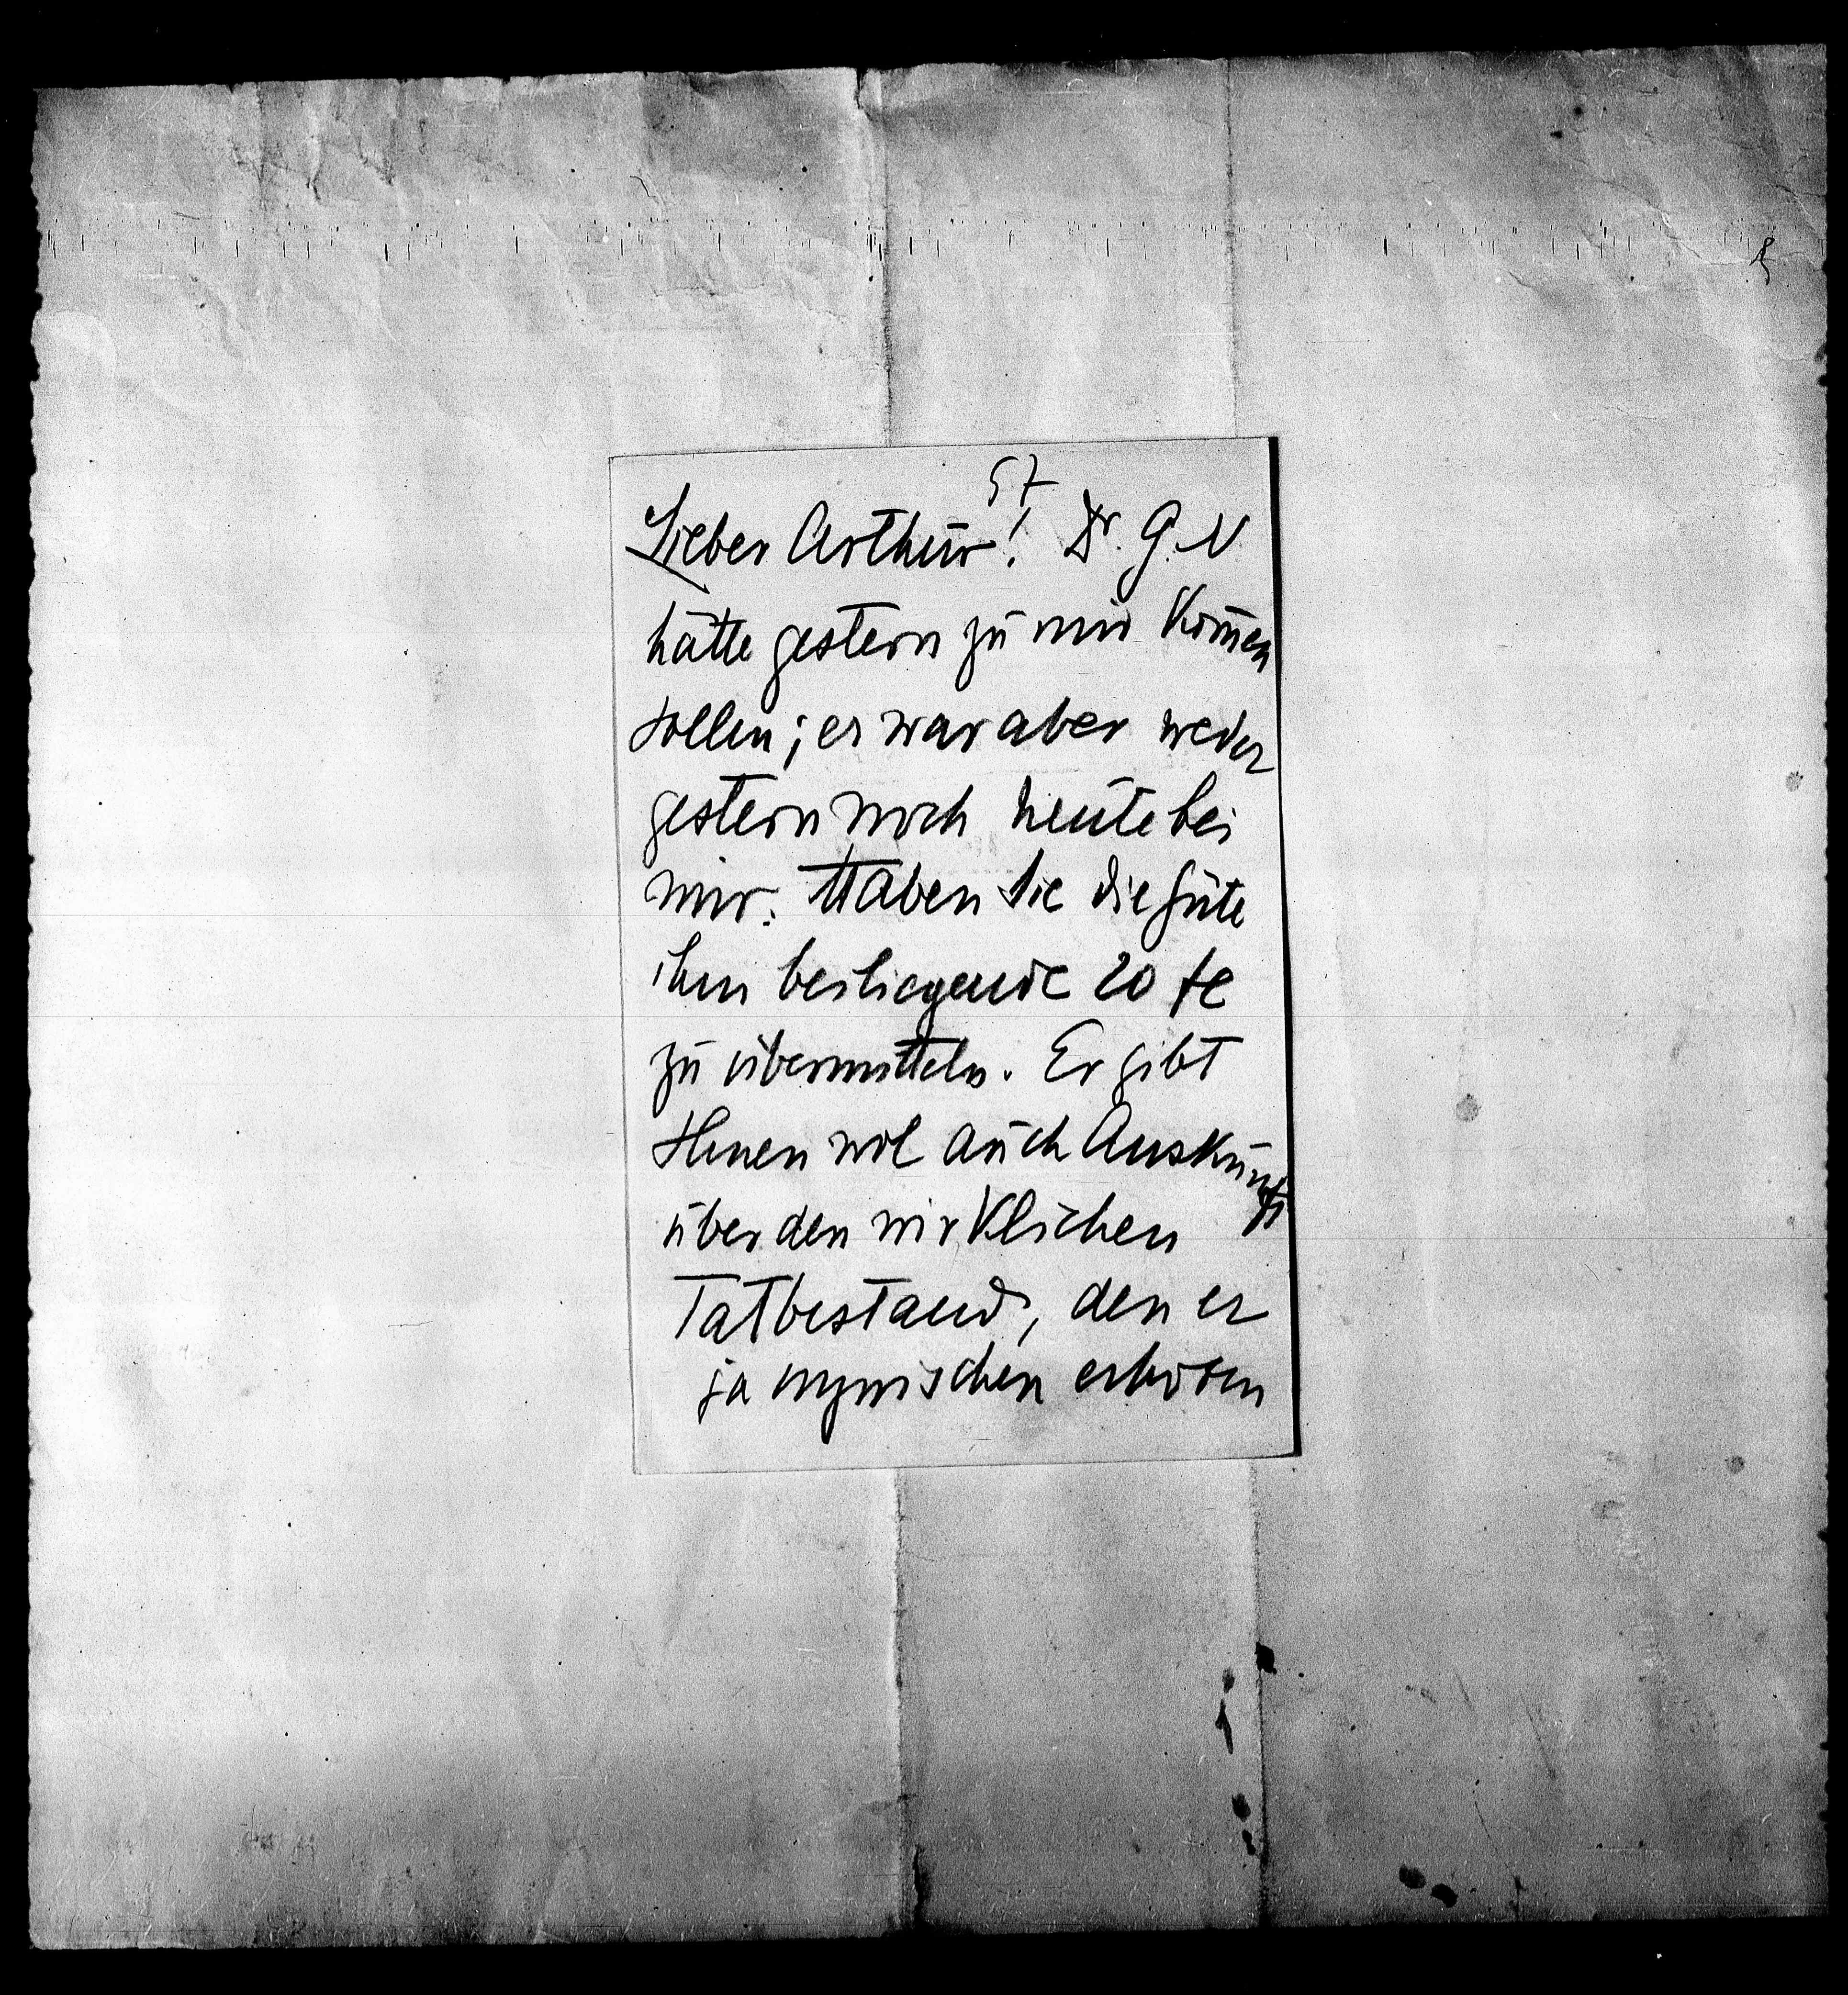 57
Lieber Arthur! Dr. G. N
hätte gestern zu mir kom̄en
sollen; er war aber weder
gestern noch heute bei
mir. Haben Sie die Güte
ihm beiliegende 20 fl
zu übermitteln. Er gibt
Ihnen wol auch Auskunft
über den wirklichen
Tatbestand, den er
ja inzwischen erhoben